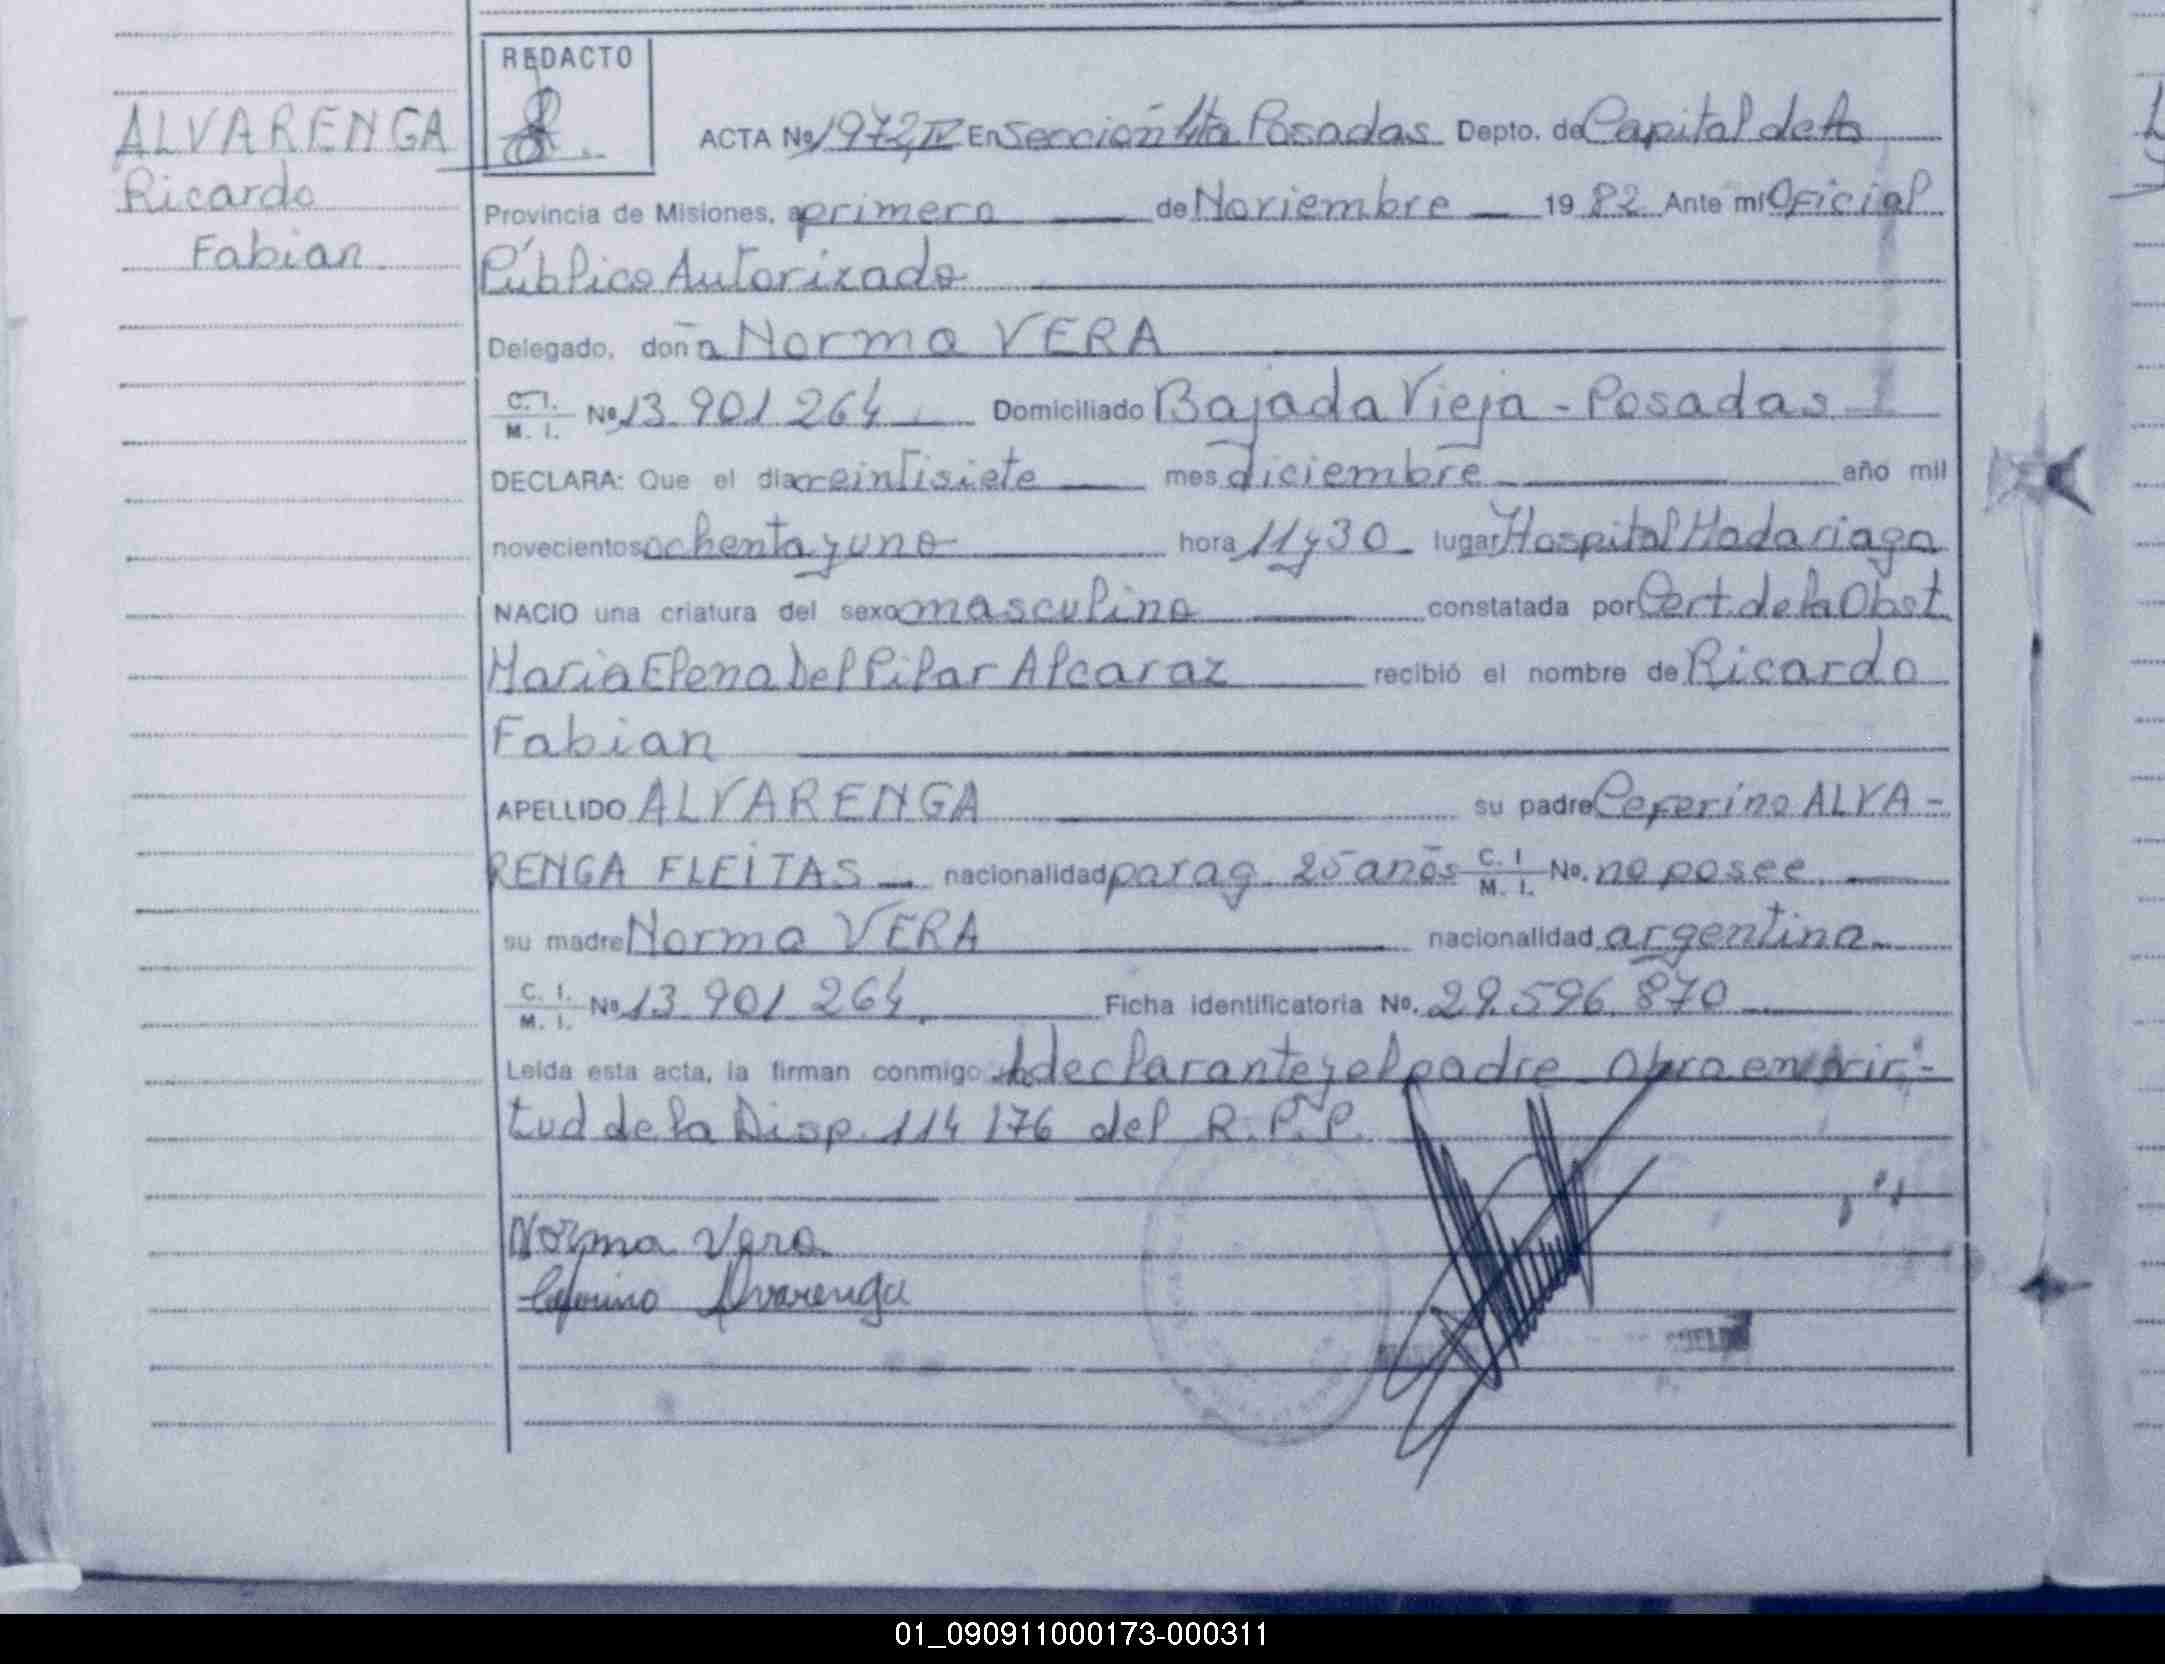 REDACTO
ALVARENGA
Ricardo
Fabian
ACTA No 1972, IV En Sección 4ta Posadas Depto. de Capital de la
Provincia de Misiones, a primero de Noviembre 1982 Ante mí Oficial
Público Autorizado
Delegado, doña Norma VERA
C. I. M. I. No 13.901.264 Domiciliado Bajada Vieja - Posadas
DECLARA: Que el día veintisiete mes diciembre año mil
novecientos ochenta y uno hora 11 y 30 lugar Hospital Madariaga
NACIO una criatura del sexo masculino constatada por Cert. de la Obst.
Maria Elena Del Pilar Alcaraz recibió el nombre de Ricardo
Fabian
APELLIDO ALVARENGA su padre Ceferino ALVA-
RENGA FLEITAS nacionalidad parag. 25 años C. I. M. I. No. no posee
su madre Norma VERA nacionalidad argentina
C. I. M. I. No 13.901.264 Ficha identificatoria No. 29.596.870
Leída esta acta, la firman conmigo declarante y el padre Obra en vir-
tud de la Disp. 114 176 del R. P. P.
Norma Vera
Ceferino Alvarenga
01_090911000173-000311